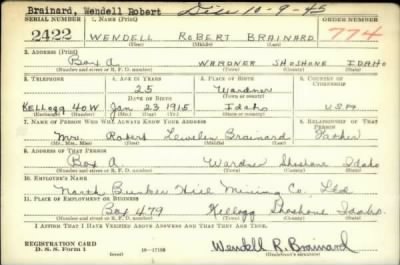 Brainard, Wendell Robert Disc 10-9-45
SERIAL NUMBER 1. NAME (Print) ORDER NUMBER
2422 WENDELL ROBERT BRAINARD 774
(First) (Middle) (Last)
2. ADDRESS (Print)
Box A WARDNER SHOSHONE IDAHO
(Number and street or R. F. D. number) (Town) (County) (State)
3. TELEPHONE 4. AGE IN YEARS 5. PLACE OF BIRTH 6. COUNTRY OF CITIZENSHIP
25 Wardner
DATE OF BIRTH (Town or county)
KELLOGG 40W Jan 23 1915 Idaho USA
(Exchange) (Number) (Mo.) (Day) (Yr.) (State or country)
7. NAME OF PERSON WHO WILL ALWAYS KNOW YOUR ADDRESS 8. RELATIONSHIP OF THAT PERSON
Mr. Robert Lewelen Brainard Father
(Mr., Mrs., Miss) (First) (Middle) (Last)
9. ADDRESS OF THAT PERSON
Box A Wardner Shoshone Idaho
(Number and street or R. F. D. number) (Town) (County) (State)
10. EMPLOYER'S NAME
North Bunker Hill Mining Co. Ltd
11. PLACE OF EMPLOYMENT OR BUSINESS
Box 479 Kellogg Shoshone Idaho.
(Number and street or R. F. D. number) (Town) (County) (State)
I AFFIRM THAT I HAVE VERIFIED ABOVE ANSWERS AND THAT THEY ARE TRUE.
REGISTRATION CARD
D. S. S. Form 1 (over) 16—17105 Wendell R. Brainard
(Registrant's signature)